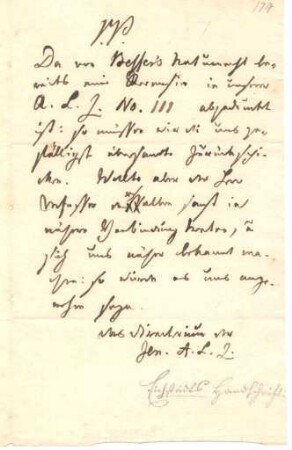 174
P.P.
Da von Besser's Naturrecht be-
reits eine Recension in unserer
A. L. Z. No. 111 abgedruckt
ist: so müssen wir die uns ge-
fälligst übersandte zurückschi-
cken. Wollte aber der Herr
Verfasser derselben sonst in
nähere Verbindung treten, u.
sich uns näher bekannt ma-
chen: so würde es uns ange-
nehm seyn.
das Directorium der
Jen. A. L. Z.
Eichstädts Handschrift.